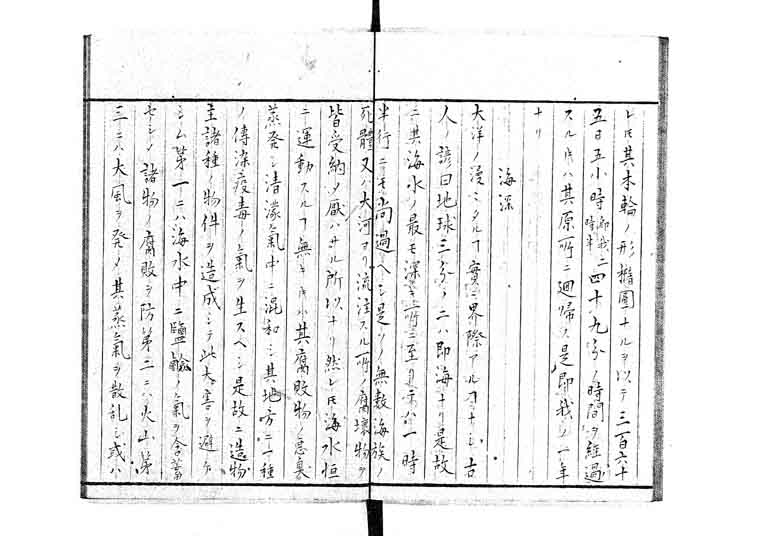 レ𪜈其本輪ノ形橢圓ナルヲ以テ三百六十
五日五小時即我時半二四十九分ノ時間ヲ経過
スル𪜈ハ其原所ニ廻帰ス是即我ノ一年
ナリ
海深
大洋ノ漫々タルヿ實ニ界際アルヿナシ古
人ノ諺曰地球三分ノ二ハ即海ナリ是故
ニ其海水ノ最モ深キ所ニ至リテハ一時
半行ニモ尚過ヘシ是レノ無数海族ノ
死體又ハ大河ヨリ流注スル所ノ腐壊物ヲ
皆受納ノ厭ハサル所以ナリ然レ𪜈海水恒
ニ運動スルヿ無キ𪜈ハ其腐敗物ノ悪臭
蒸発シ清濛氣中ニ混和シ其地方ニ一種
ノ傳染疫毒ノ氣ヲ生スヘシ是故ニ造物
主諸種ノ物件ヲ造成シテ此大害ヲ避ケ
シム第一ニハ海水中ニ鹽鹹ノ氣ヲ含蓄
セシメ諸物ノ腐敗ヲ防第二ニハ火山第
三ニハ大風ヲ発メ其蒸氣ヲ散乱シ或ハ